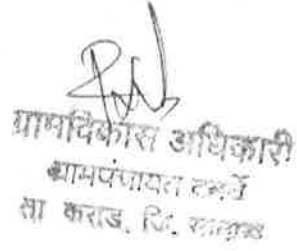 ग्रामविकास अधिकारी
ग्रामपंचायत
ता कराड, जि.